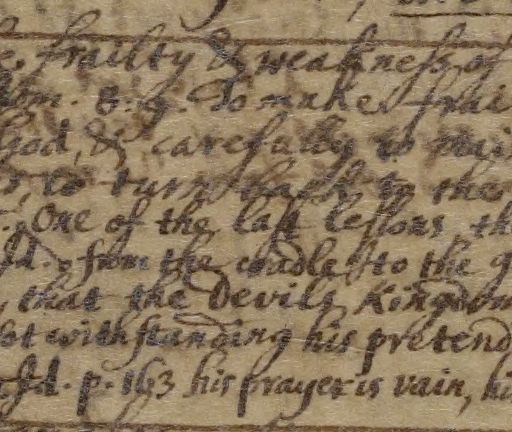 frailty & weakness of
8: 3. To make frai
God, & carefully to
to turn back to the
One of the last lessons th
Id. from the cradle to the g
that the Devils Kingdom
not withstanding his pretend
Id. p. 163 his prayer is vain, hi